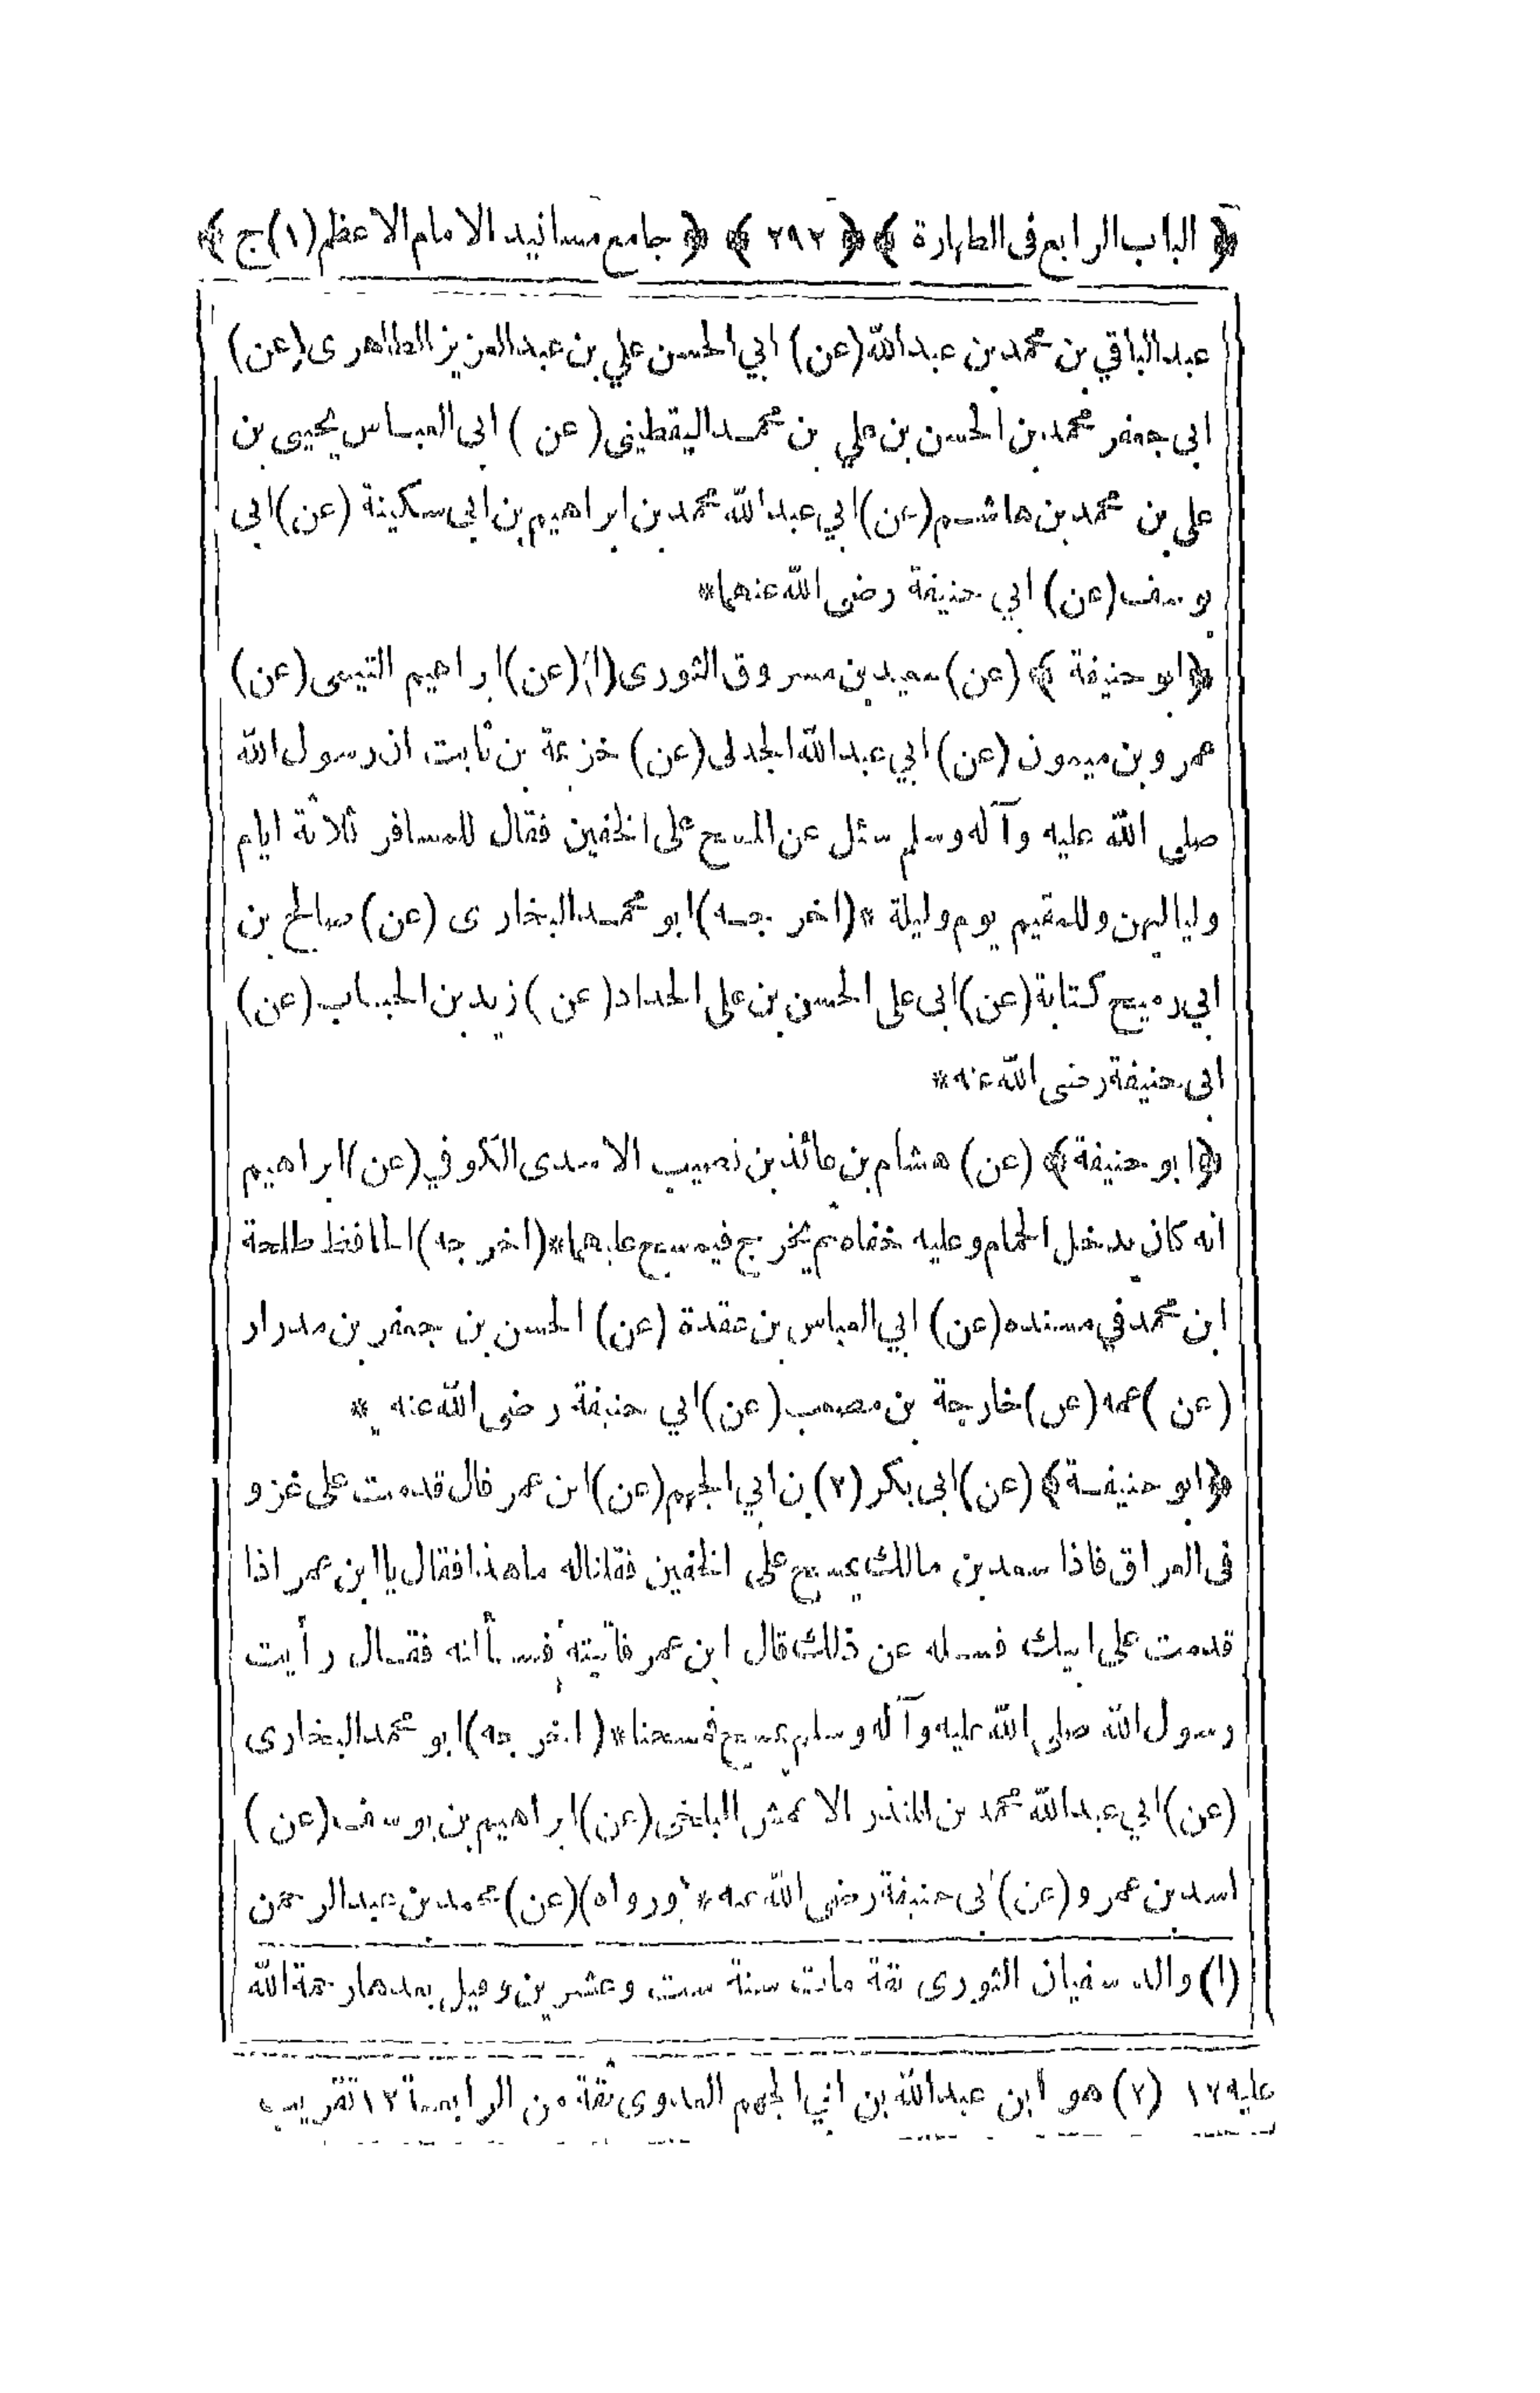 ﴿ الباب الرابع فى الطهارة ﴾ ﴿ ٢٩٢ ﴾ ﴿ جامع مسانيد الامام الاعظم (١) ج ﴾
عبد الباقي بن محمد بن عبدالله (عن) ابي الحسن علي بن عبد العزيز الطاهرى (عن)
ابى جعفر محمد بن الحسن بن علي بن محمد اليقطينى (عن) ابى العباس يحيى بن
على بن محمد بن هاشم (عن) ابي عبدالله محمد بن ابراهيم بن ابى سكينة (عن) ابى
يوسف (عن) ابي حنيفة رضى الله عنهما*
﴿ابو حنيفة﴾ (عن) سعيد بن مسروق الثورى (١) (عن) ابراهيم التيمى (عن)
عمرو بن ميمون (عن) ابي عبدالله الجدلى (عن) خزيمة بن ثابت ان رسول الله
صلى الله عليه وآله وسلم سئل عن المسح على الخفين فقال للمسافر ثلاثة ايام
ولياليهن وللمقيم يوم وليلة *(اخرجه) ابو محمد البخارى (عن) صالح بن
ابي رميح كتابة (عن) ابى على الحسن بن على الحداد (عن) زيد بن الحباب (عن)
ابى حنيفة رضى الله عنه*
﴿ابو حنيفة﴾ (عن) هشام بن عائذ بن نصيب الاسدى الكوفي (عن) ابراهيم
انه كان يدخل الحمام وعليه خفاه ثم يخرج فيمسح عليهما*(اخرجه) الحافظ طلحة
ابن محمد في مسنده (عن) ابي العباس بن عقدة (عن) الحسن بن جعفر بن مدرار
(عن) عمه (عن) خارجة بن مصعب (عن) ابي حنيفة رضى الله عنه *
﴿ابو حنيفة﴾ (عن) ابى بكر (٢) بن ابي الجهم (عن) ابن عمر قال قدمت على غزو
فى العراق فاذا سعد بن مالك يمسح على الخفين فقلنا له ما هذا فقال يا ابن عمر اذا
قدمت على ابيك فسله عن ذلك قال ابن عمر فاتيته فسألته فقال رأيت
رسول الله صلى الله عليه وآله وسلم يمسح فمسحنا*(اخرجه) ابو محمد البخارى
(عن) ابي عبدالله محمد بن المنذر الاعمش البلخى (عن) ابراهيم بن يوسف (عن)
اسد بن عمرو (عن) ابى حنيفة رضى الله عنه* (ورواه) (عن) محمد بن عبد الرحمن
(١) والد سفيان الثورى ثقة مات سنة ست وعشرين وقيل بعدها رحمة الله
عليه ١٢ (٢) هو ابن عبدالله بن ابي الجهم العدوى ثقة من الرابعة ١٢ تقريب